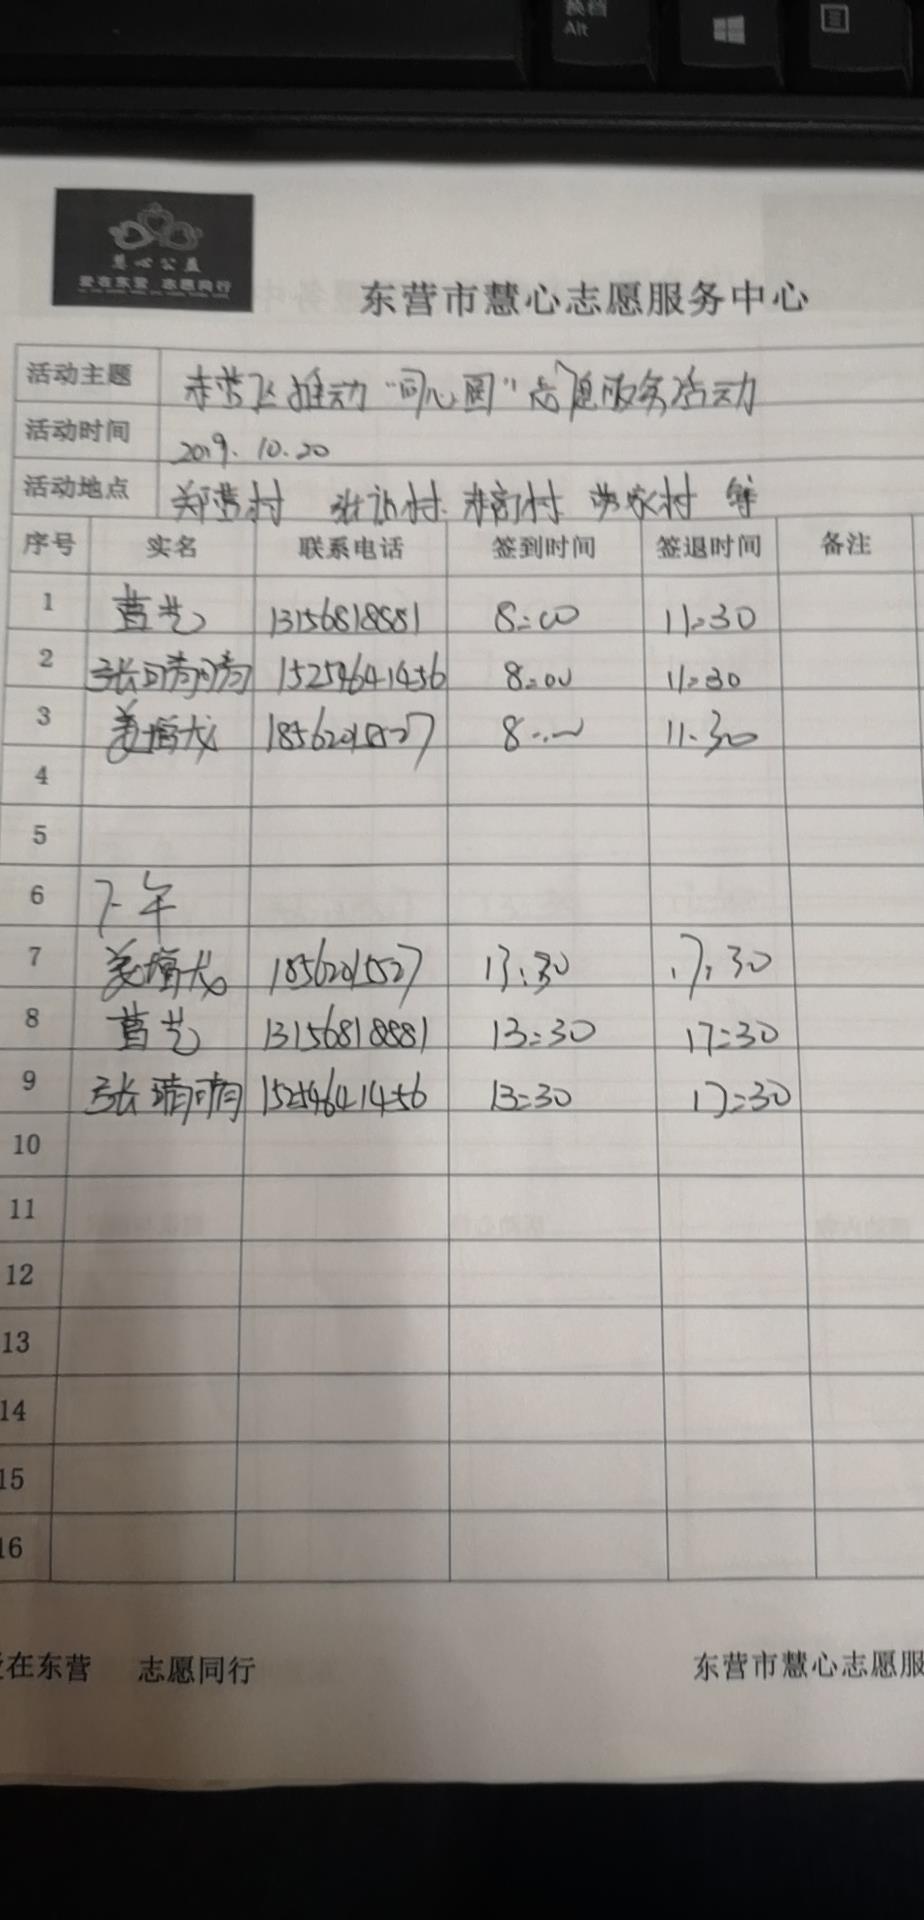 换档
Alt
慧心公益
爱在东营 志愿同行
东营市慧心志愿服务中心
活动主题 东营区推动"同心圆"志愿服务活动
活动时间 2019.10.20
活动地点 郑营村 村 村 村 等
序号 实名 联系电话 签到时间 签退时间 备注
1 13156818881 8:00 11:30
2 张晴晴 15254641456 8:00 11:30
3 姜增龙 8:00 11:30
4
5
6 下午
7 姜增龙 13:30 17:30
8 13156818881 13:30 17:30
9 张晴晴 15254641456 13:30 17:30
10
11
12
13
14
15
16
爱在东营 志愿同行 东营市慧心志愿服